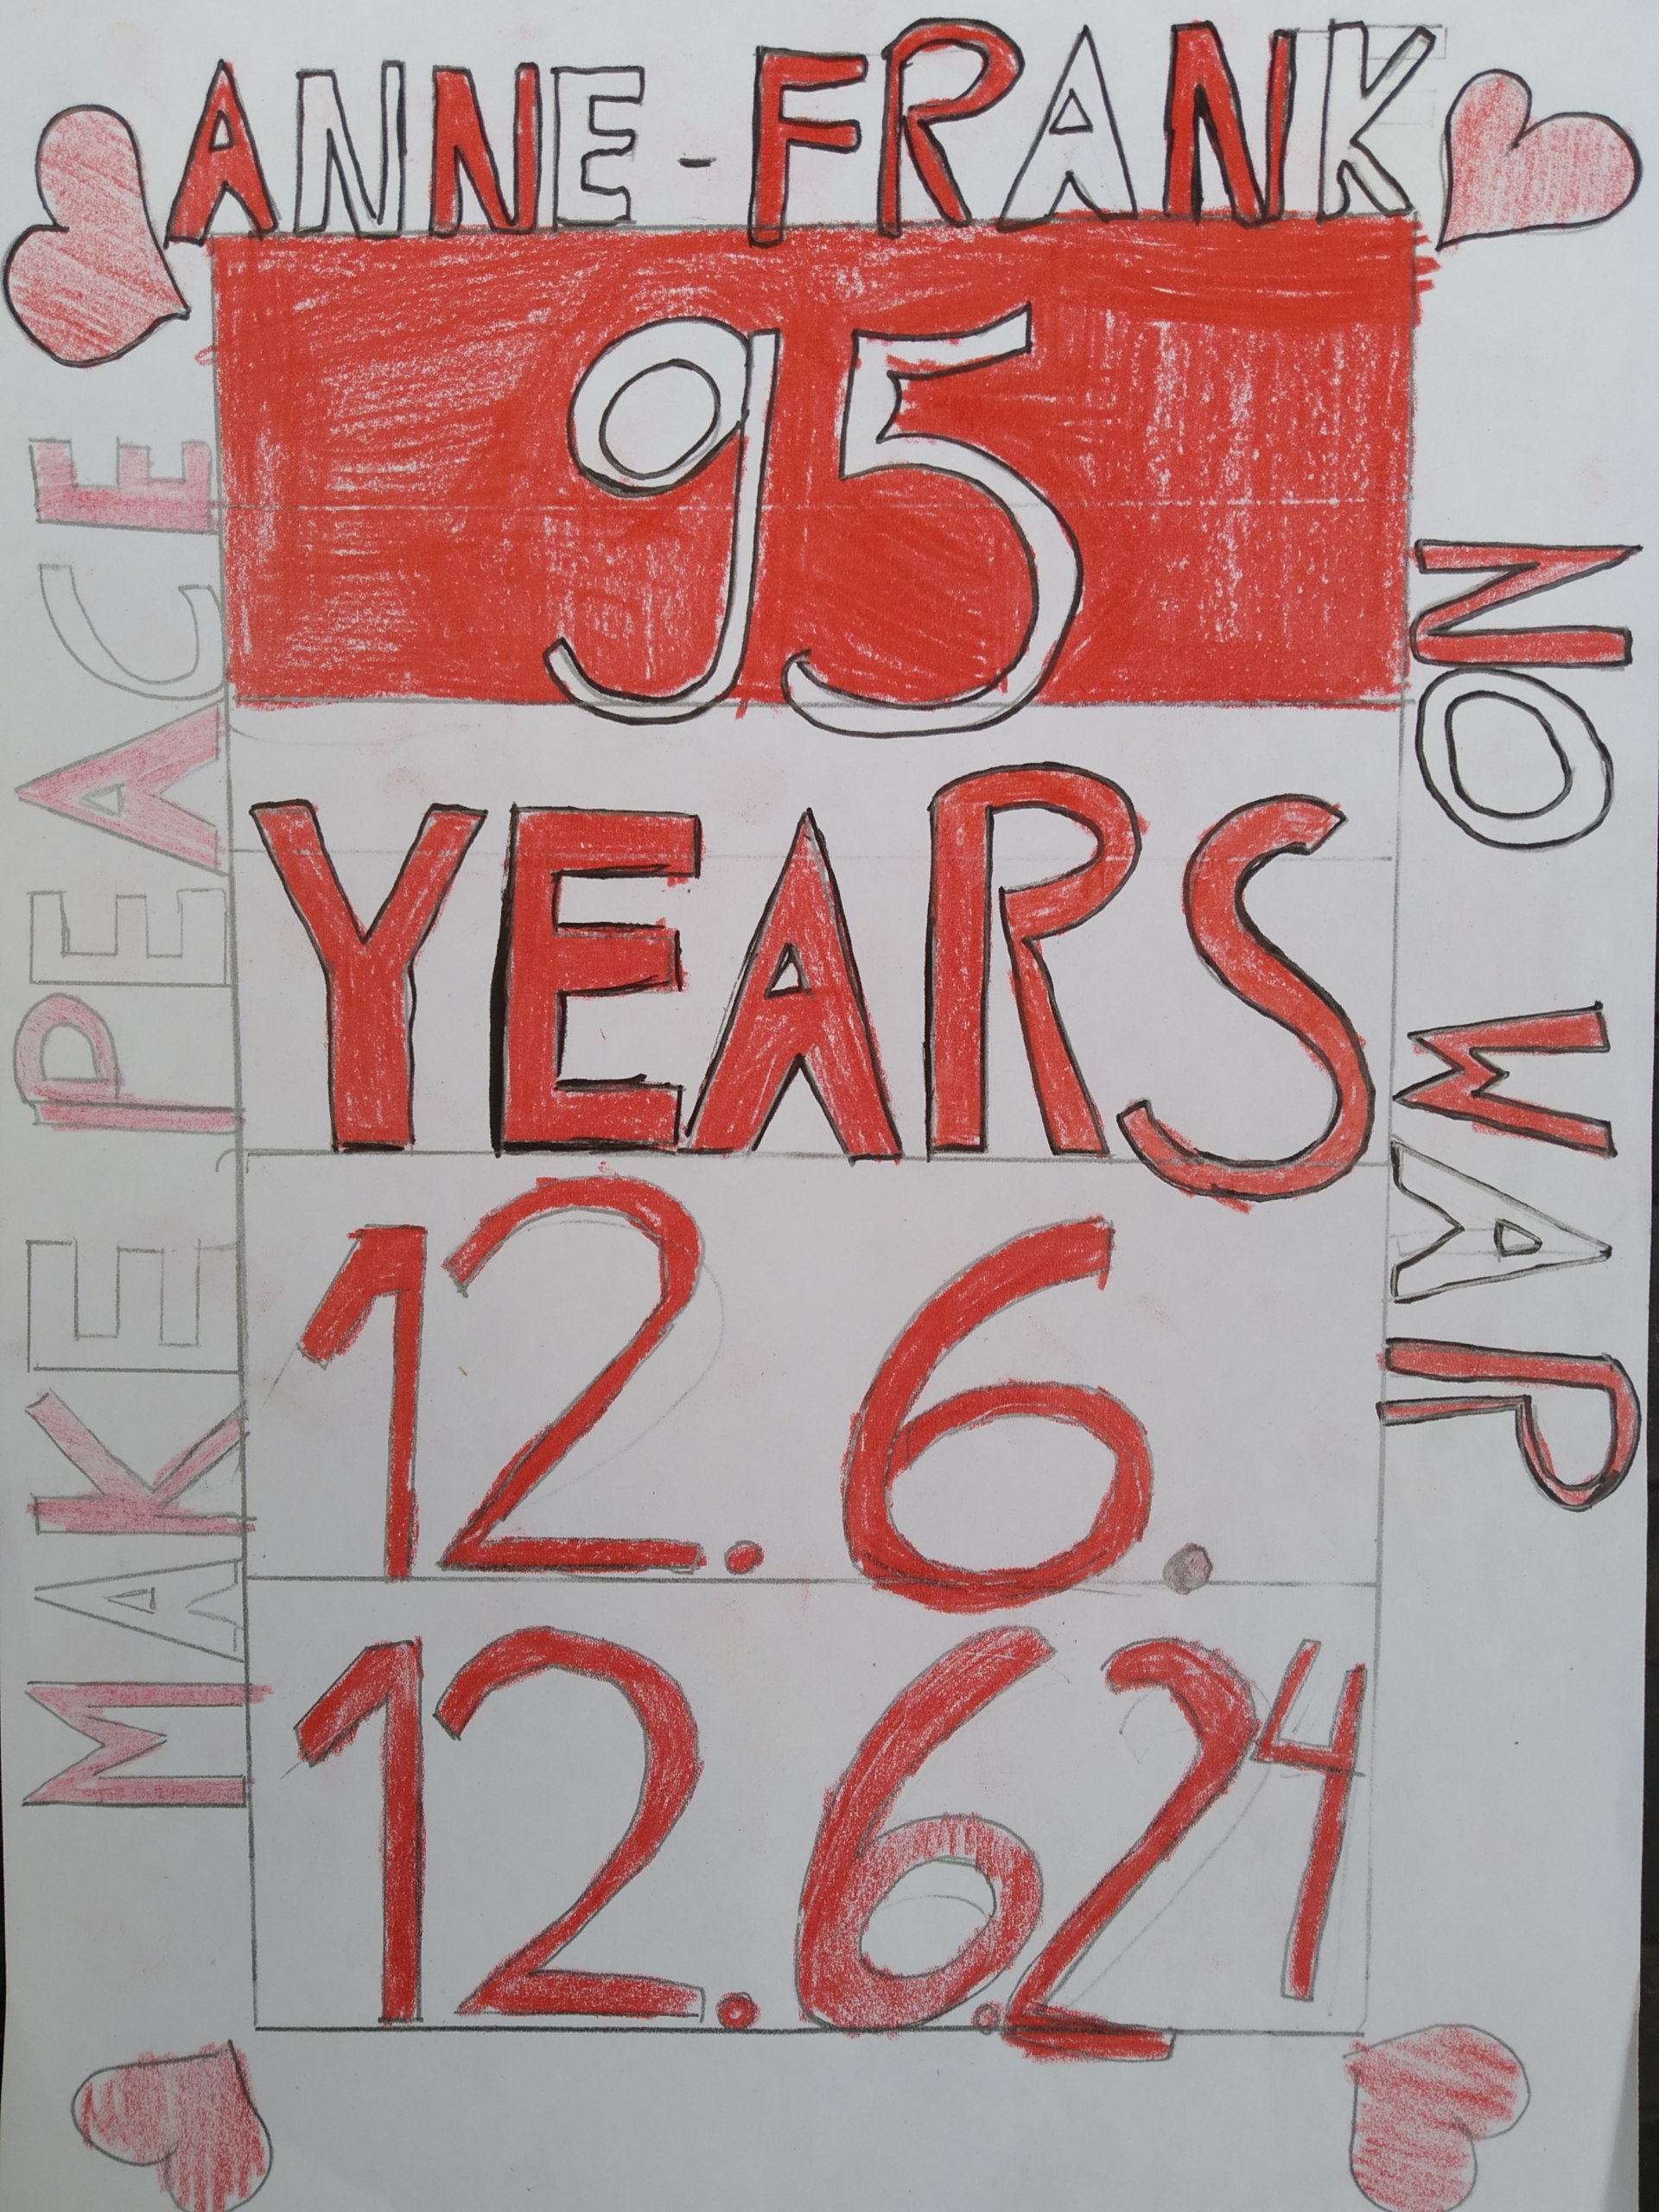 ANNE-FRANK
95
YEARS
12.6.
12.6.24
MAKE PEACE
NO WAP